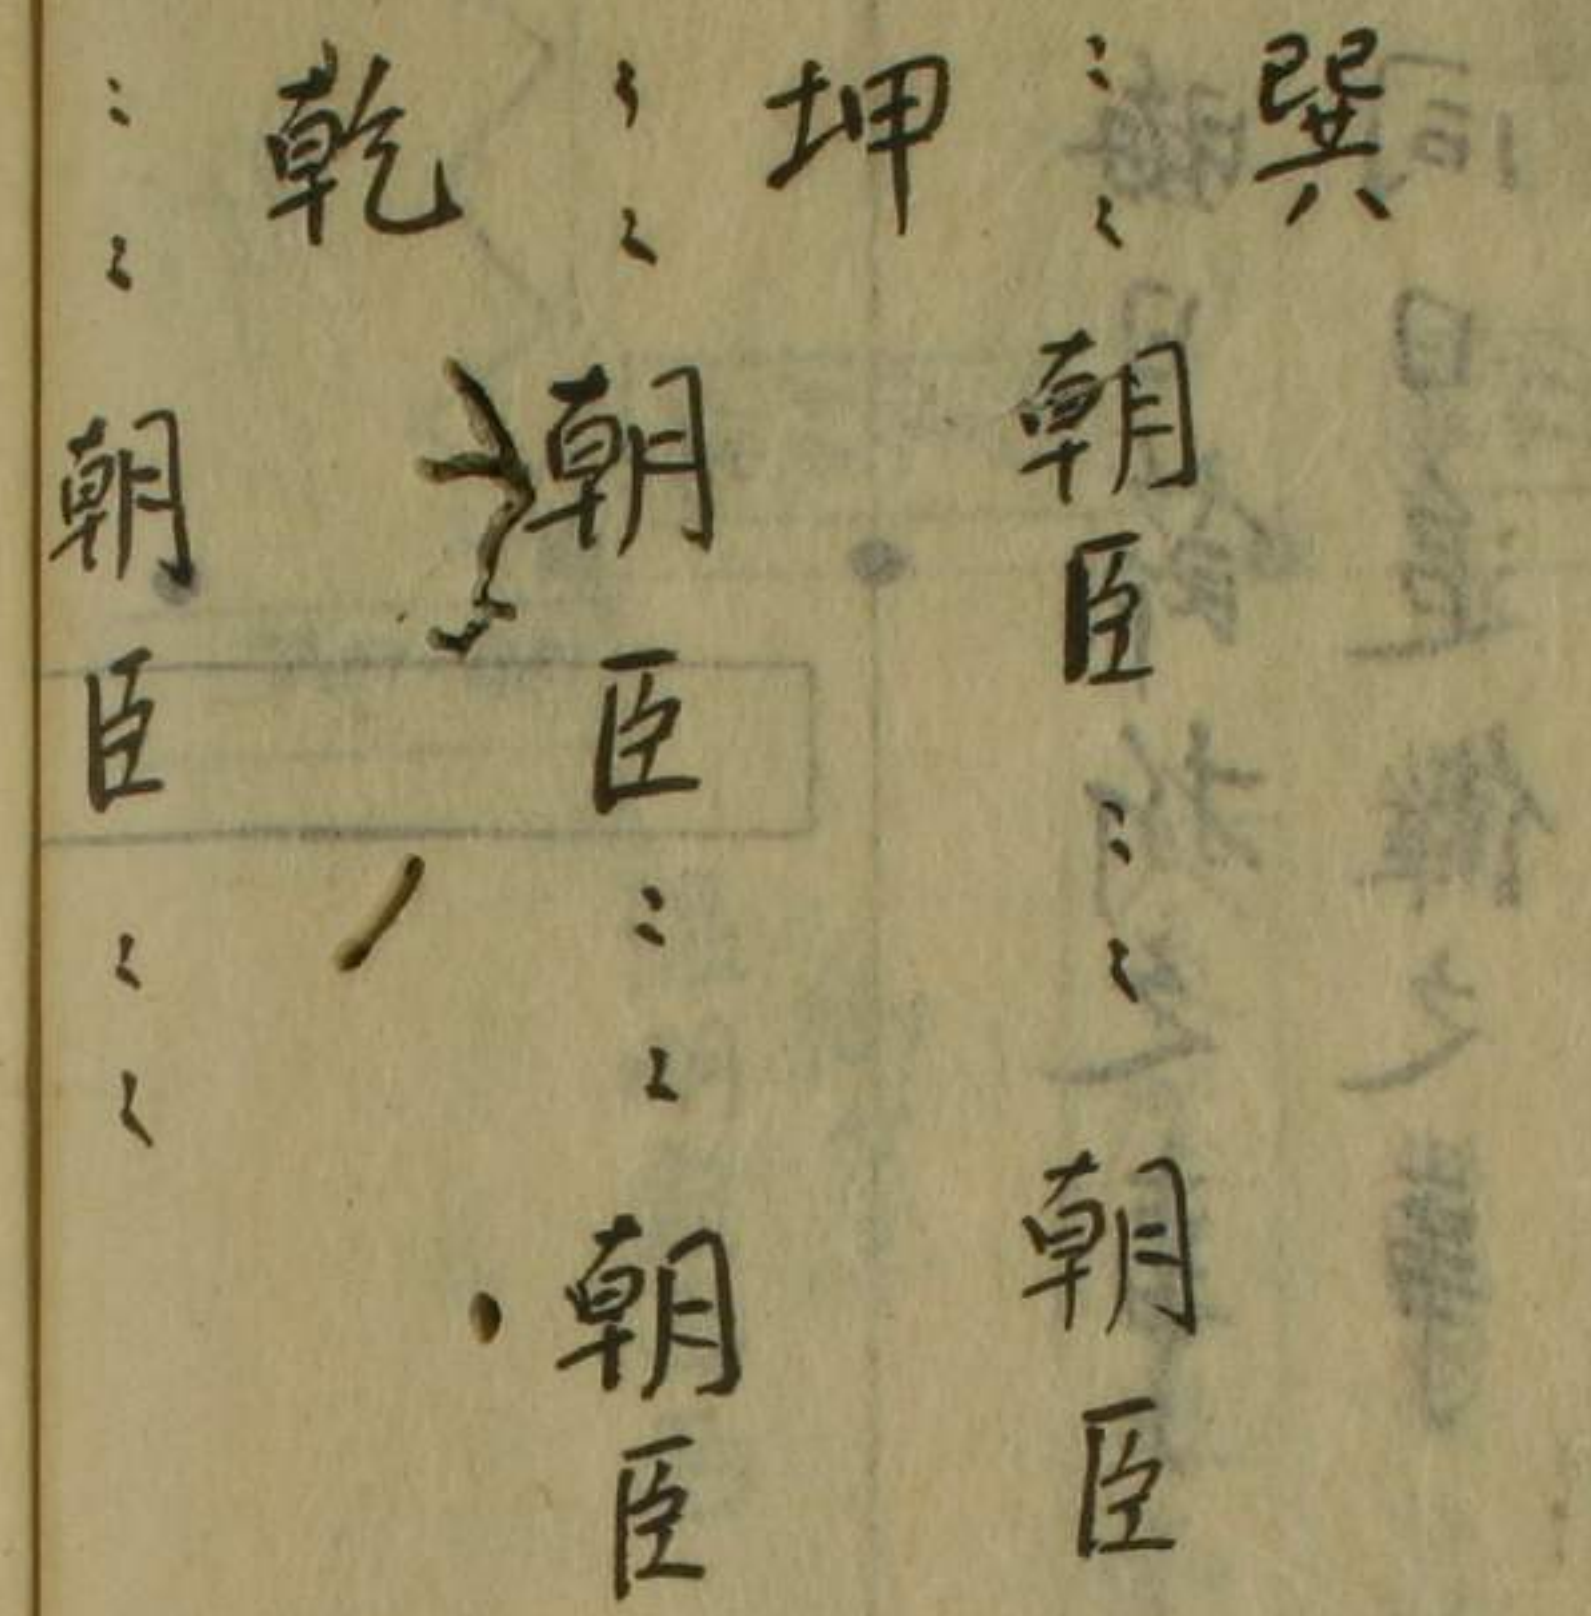 巽
〻〻朝臣〻〻朝臣
坤
〻〻朝臣〻〻朝臣
乾
〻〻朝臣〻〻